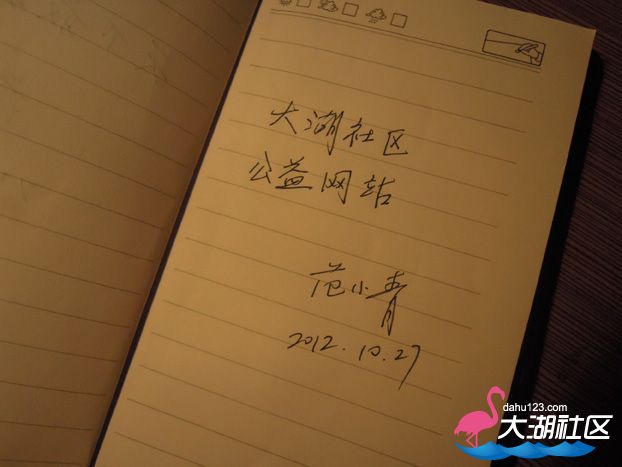 大湖社区
公益网站
范小青
2012.10.27
dahu123.com
大湖社区